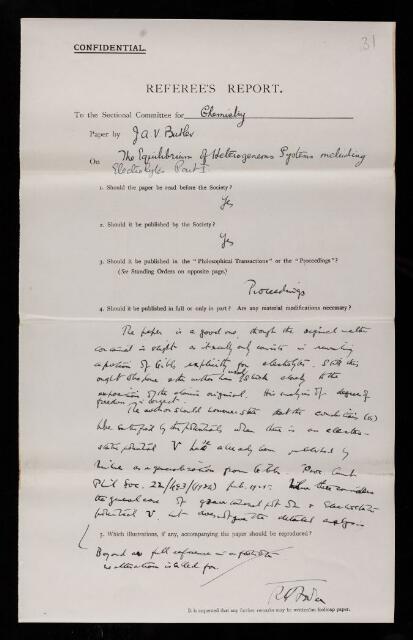 31
CONFIDENTIAL.
REFEREE'S REPORT.
To the Sectional Committee for Chemistry
Paper by J A V Butler
On The Equilibrium of Heterogeneous Systems including
Electrolytes Part I
1. Should the paper be read before the Society?
Yes
2. Should it be published by the Society?
Yes
3. Should it be published in the "Philosophical Transactions" or the "Proceedings"?
(See Standing Orders on opposite page.)
Proceedings
4. Should it be published in full or only in part? Are any material modifications necessary?
The paper is a good one, though the original matter
contained is slight as it really only consists in rewriting
a portion of Gibbs explicitly for electrolytes. Still this
ought to be done & the author has to stick closely to the
exposition of the classic original. His analysis of degrees of
freedom is
The author should however state that the conditions (a)
to be satisfied by the potentials when there is an electro-
static potential V have already been published by
as a generalization from Gibbs. Proc. Camb
Phil Soc. 22/493/(1924) feb. 1925. there considers
the general case of gravitational pot & electrostatic
potential V, but does not give the detailed analysis.
5. Which illustrations, if any, accompanying the paper should be reproduced?
Beyond a full reference in a footnote
no alteration is called for.
R H Fowler
It is requested that any further remarks may be written on foolscap paper.